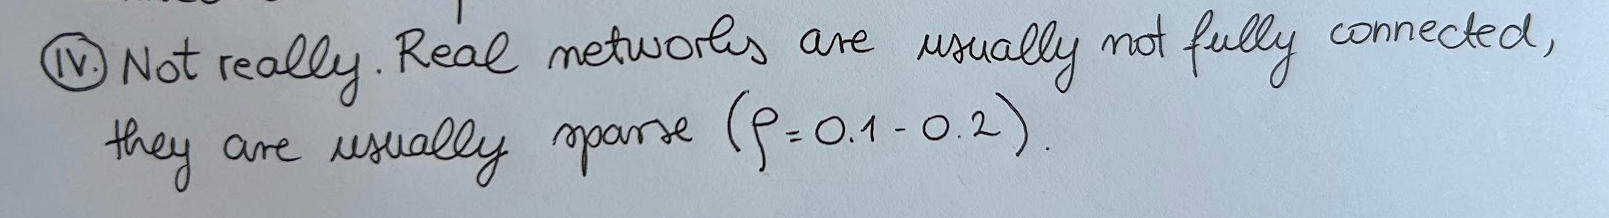 IV. Not really. Real networks are usually not fully connected,
they are usually sparse (ρ=0.1-0.2).